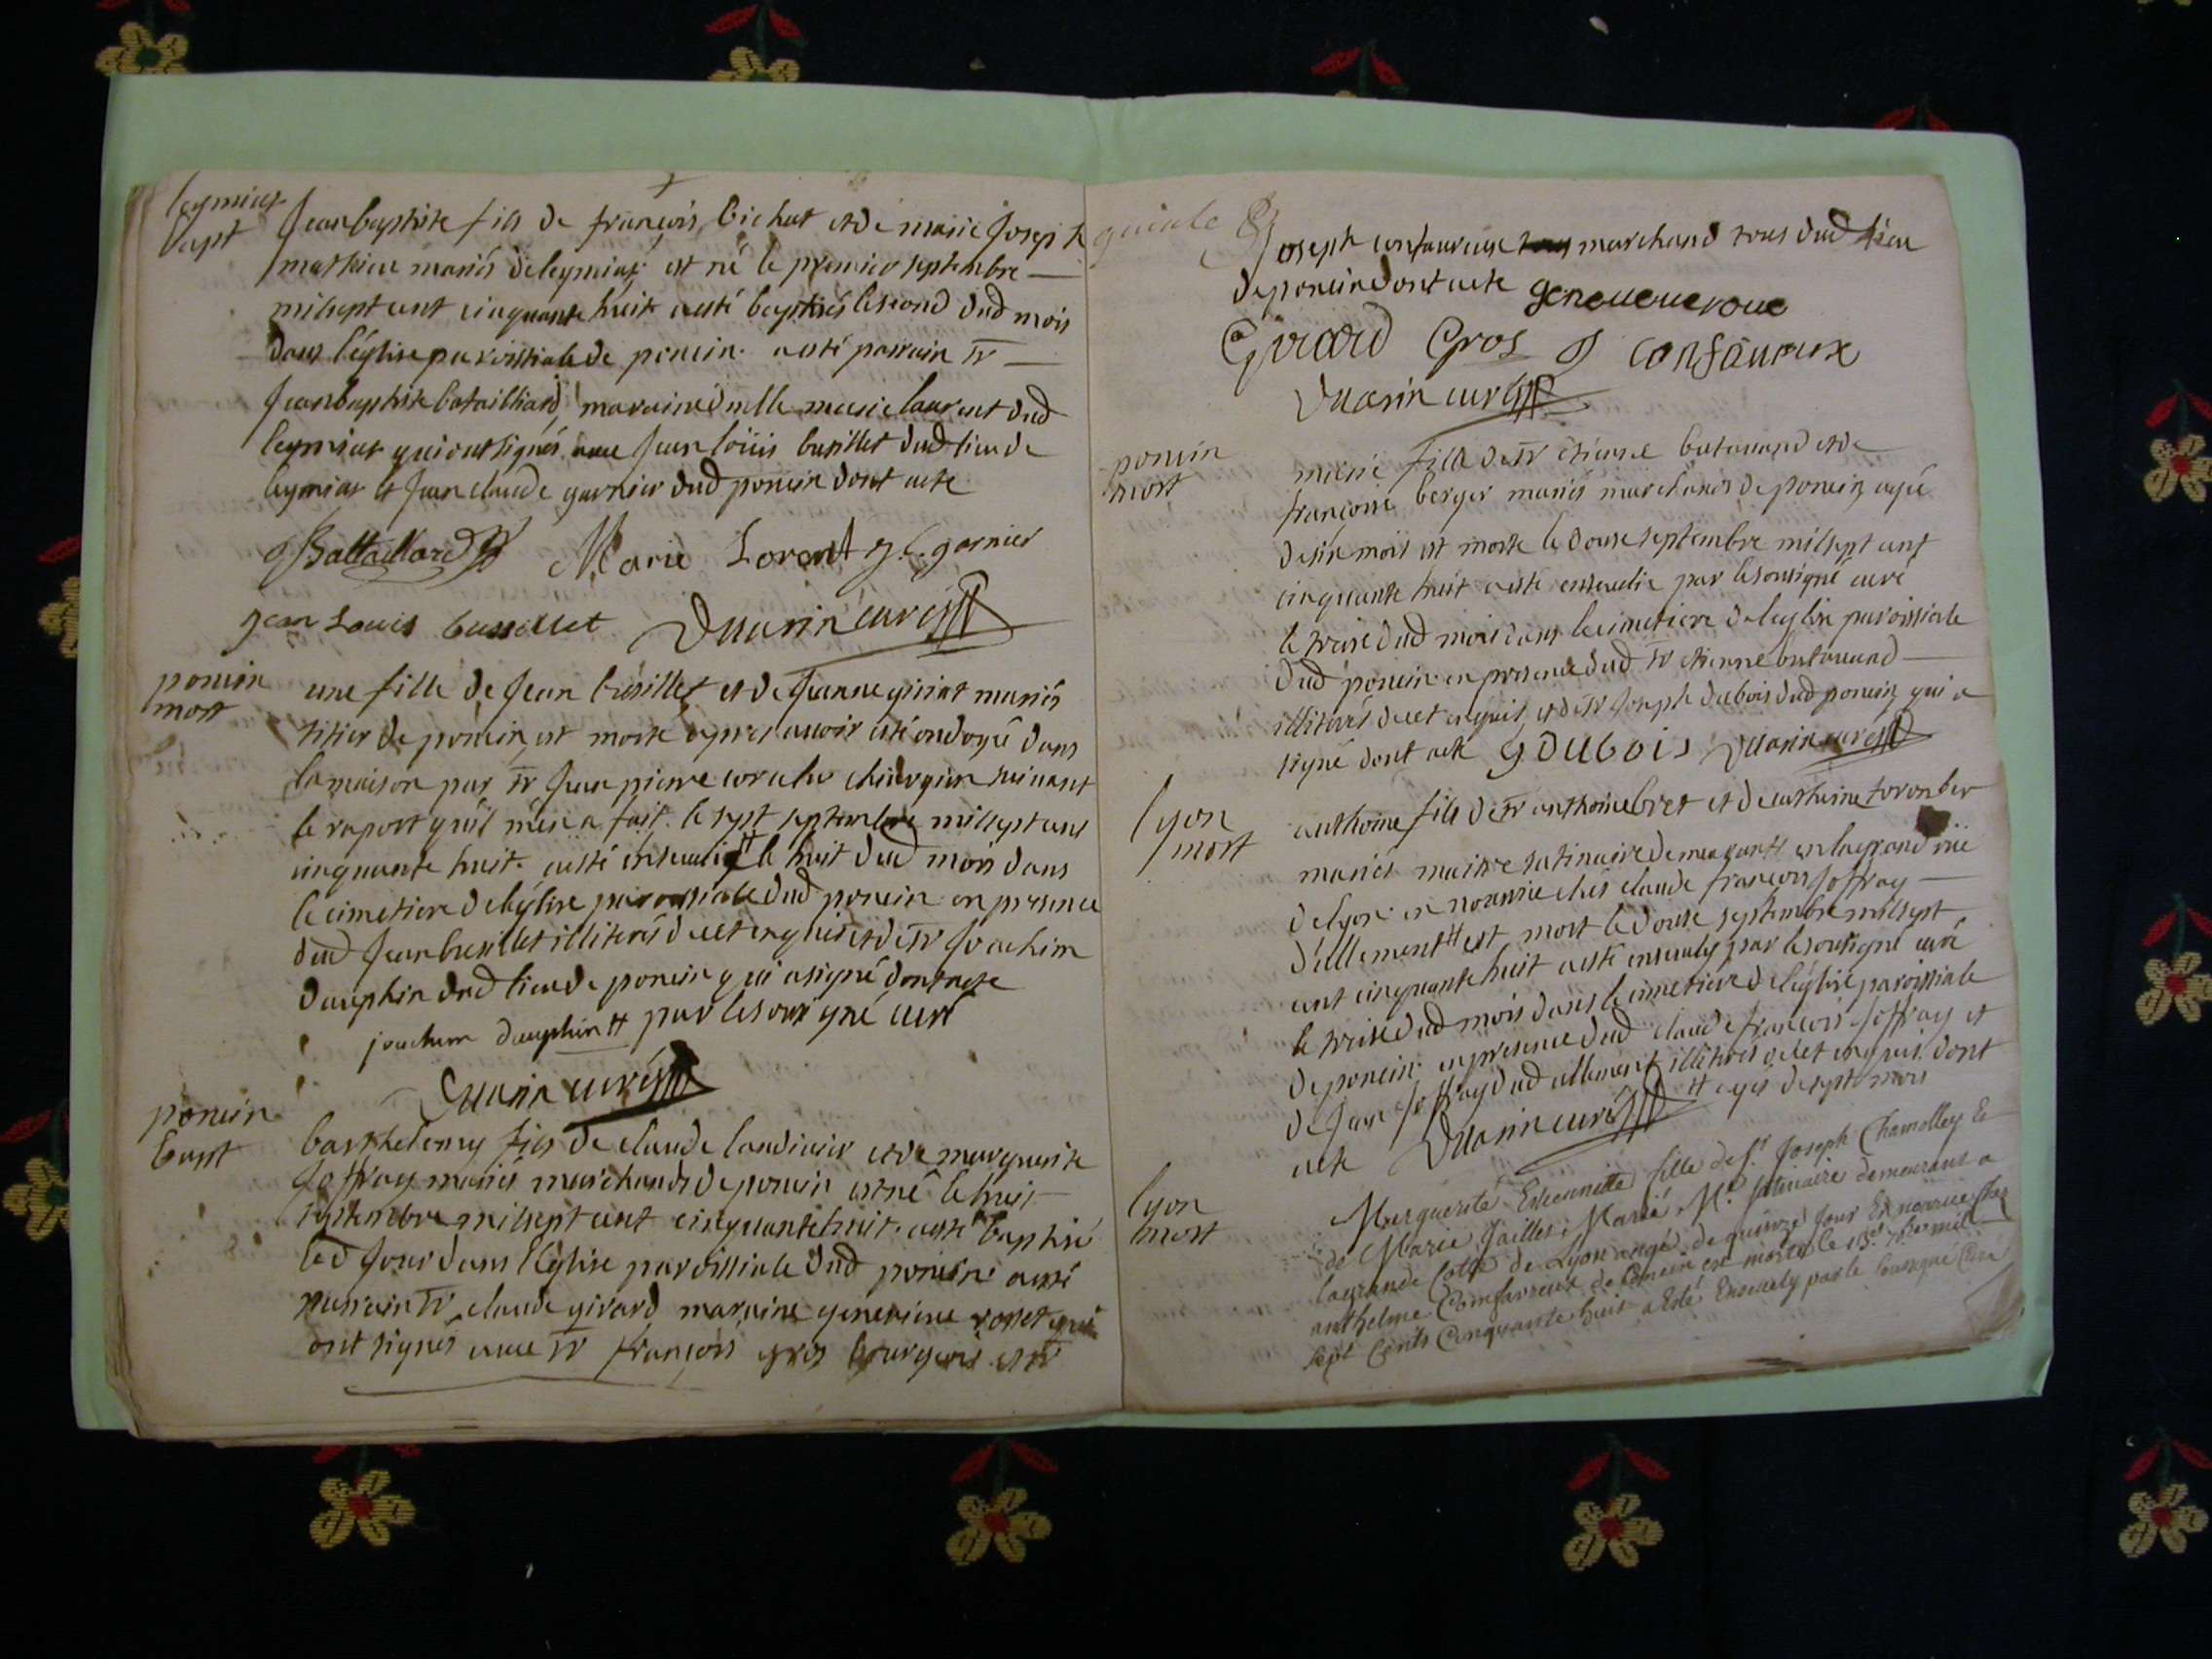 leymiat
bapt
Jean baptiste fils de françois bichat et de marie Joseph
mathieu mariés de leymiat est né le premier septembre
mil sept cent cinquante huit a esté baptisés le second dud mois
dans l'église paroissiale de poncin a esté parrain Sr
Jean baptiste batailliard maraine dlle marie laurent dud
leymiat qui ont signés avec Jean loüis busillet dud lieu de
leymiat et Jean claude garnier dud poncin dont acte
JBattaillard Marie Lorant J C garnier
Jean Louis bussillet Duarin curé
poncin
mort
une fille de Jean busillet et de Jeanne giriat mariés
titier de poncin est morte apres avoir esté ondoyé dans
la maison par Sr Jean pierre chirurgien suivant
le raport qu'il m'en a fait le sept septembre mil sept cent
cinquante huit a esté enseveli # le huit dud mois dans
le cimetiere de l'église paroissiale dud poncin en presence
dud Jean busillet illiterés de ce enquis et de Sr Joachim
dauphin dud lieu de poncin qui a signé dont acte
joachim dauphin # par le soussigné curé
Duarin curé
poncin
bapt
barthelemy fils de claude et de marguerite
Joffray mariés marchands de poncin est né le huit
septembre mil sept cent cinquante huit a esté baptisé
led Jour dans l'église paroissiale dud poncin a esté
parrain Sr claude girard maraine genevieve rosset qui
ont signés avec Sr françois gros bourgeois et Sr
Joseph confavreux marchand tous dud lieu
de poncin dont acte
Girard Gros J confavreux
Duarin curé
poncin
mort
marie fille de Sr étienne et de
françoise berger mariés marchands de poncin agé
de six mois est morte le douse septembre mil sept cent
cinquante huit a esté enseveli par le soussigné curé
le treise dud mois dans le cimetiere de l'église paroissiale
dud poncin en presence dud Sr étienne
illiterés de ce enquis et de Sr Joseph dubois dud poncin qui a
signé dont acte J Dubois Duarin curé
lyon
mort
anthoine fils de Sr anthoine bret et de catherine
mariés maitre satinaire demeurants en la grand rüe
de lyon en nourrice chés claude françois Joffray
d'allement # est mort le douse septembre mil sept
cent cinquante huit a esté ensevely par le soussigné curé
le treise dud mois dans le cimetiere de l'église paroissiale
de poncin en presence dud claude françois Joffray et
de Jean Joffray dud allement illiterés de ce enquis dont
acte Duarin curé # agé de sept mois
lyon
mort
Marguerite Estiennette fille de Sr Joseph Chamolley &
de Marie Jailles Marié Mre Satinaire demeurans a
la grande Cotte de Lyon agé de quinze Jour En nourrice Chez
anthelme Comfavreux de Poncin est morte le 13e 7bre mil
Sept Cents Cinquante huit a Esté Ensevely par le Soussigné Curé